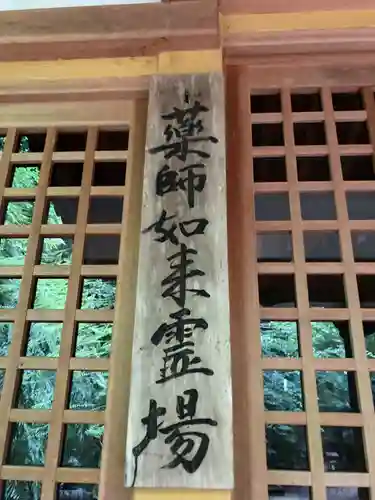 藥師如来霊場